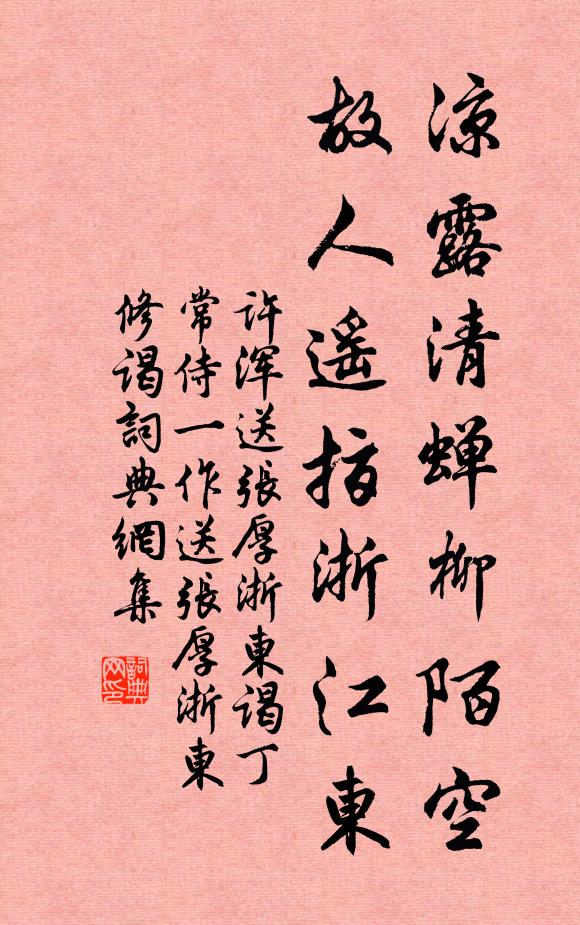 凉露清蝉柳陌空
故人遥指浙江東
许浑送張厚浙東謁丁
常侍一作送張厚浙東
修謁詞典網集
詞典网印